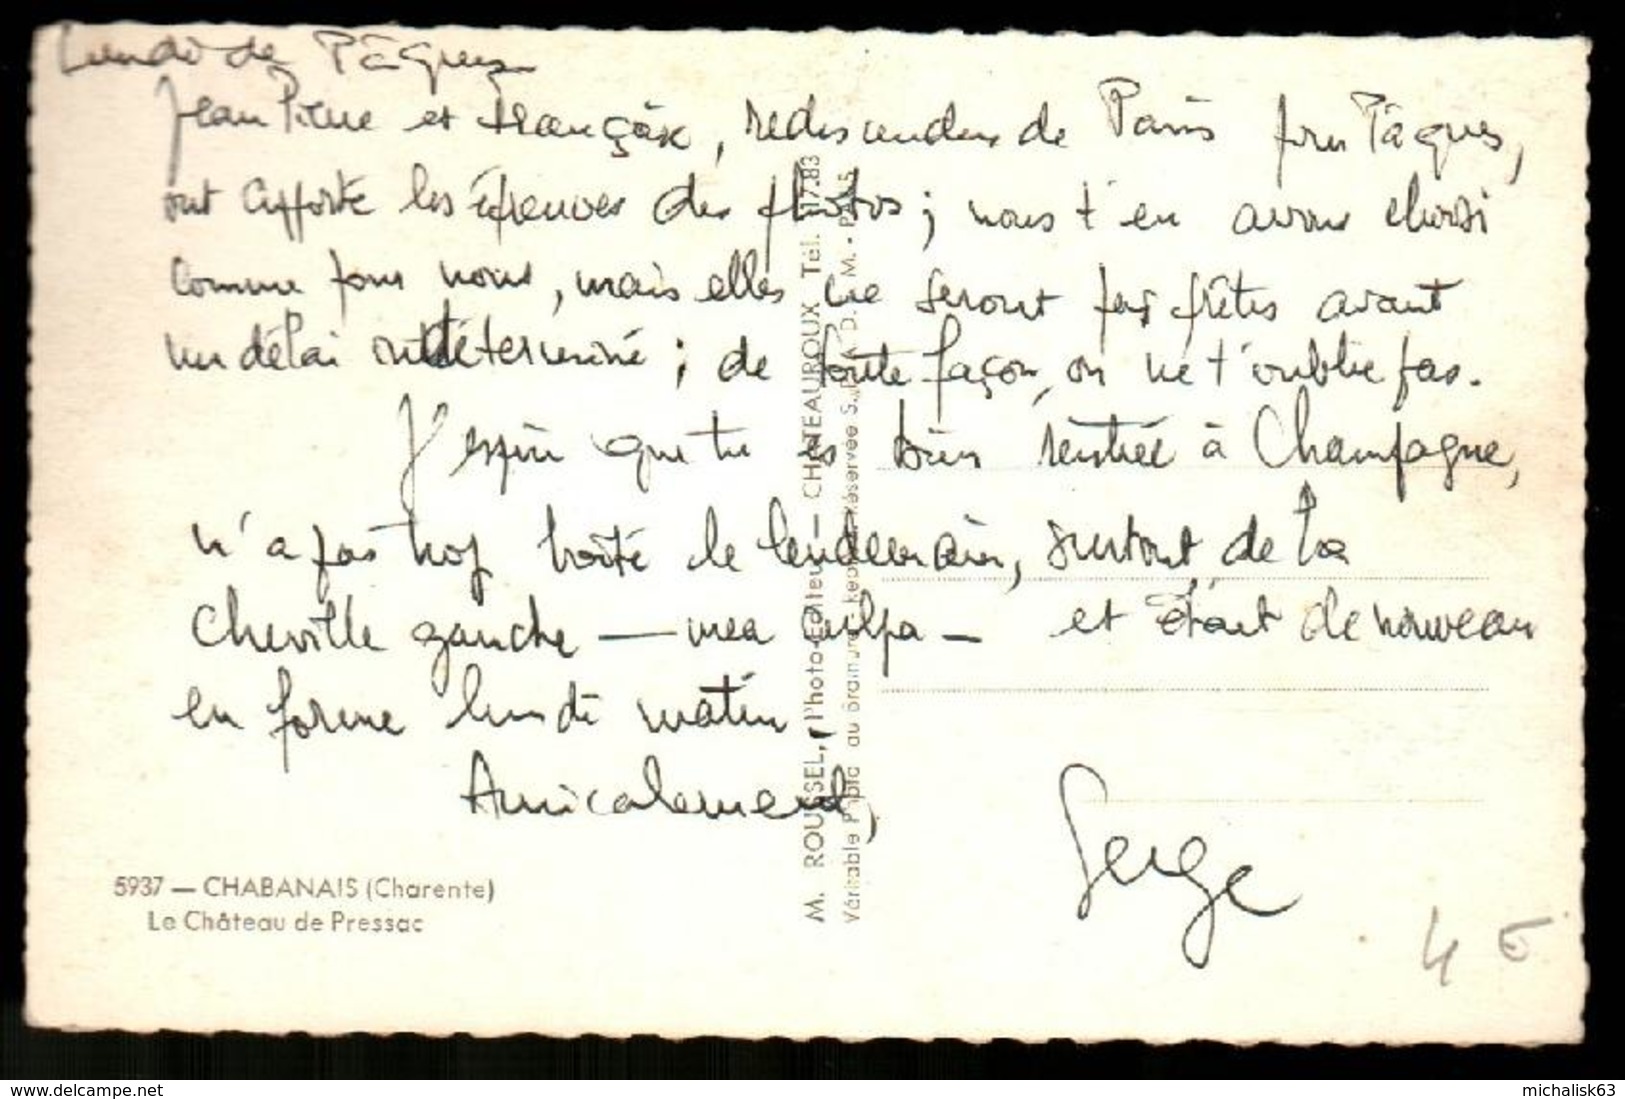 Lundi de Pâques
Jean Pierre et Françoise, redescendus de Paris pour Pâques,
ont apporté les épreuves des photos ; nous t'en avons choisi
comme pour nous, mais elles ne seront pas prêtes avant
un délai indéterminé ; de toute façon, on ne t'oublie pas.
J'espère que tu es bien rentrée à Champagne,
n'a pas trop boité le lendemain, surtout de la
cheville gauche — mea culpa — et étant de nouveau
en forme lundi matin.
Amicalement,
Serge
5937 — CHABANAIS (Charente)
Le Château de Pressac
M. ROUSSEL, Photo-Editeur — CHATEAUROUX Tél. 17.83
Véritable Photo au Bromure Reproon réservée
4 €
www.delcampe.net
michalisk63